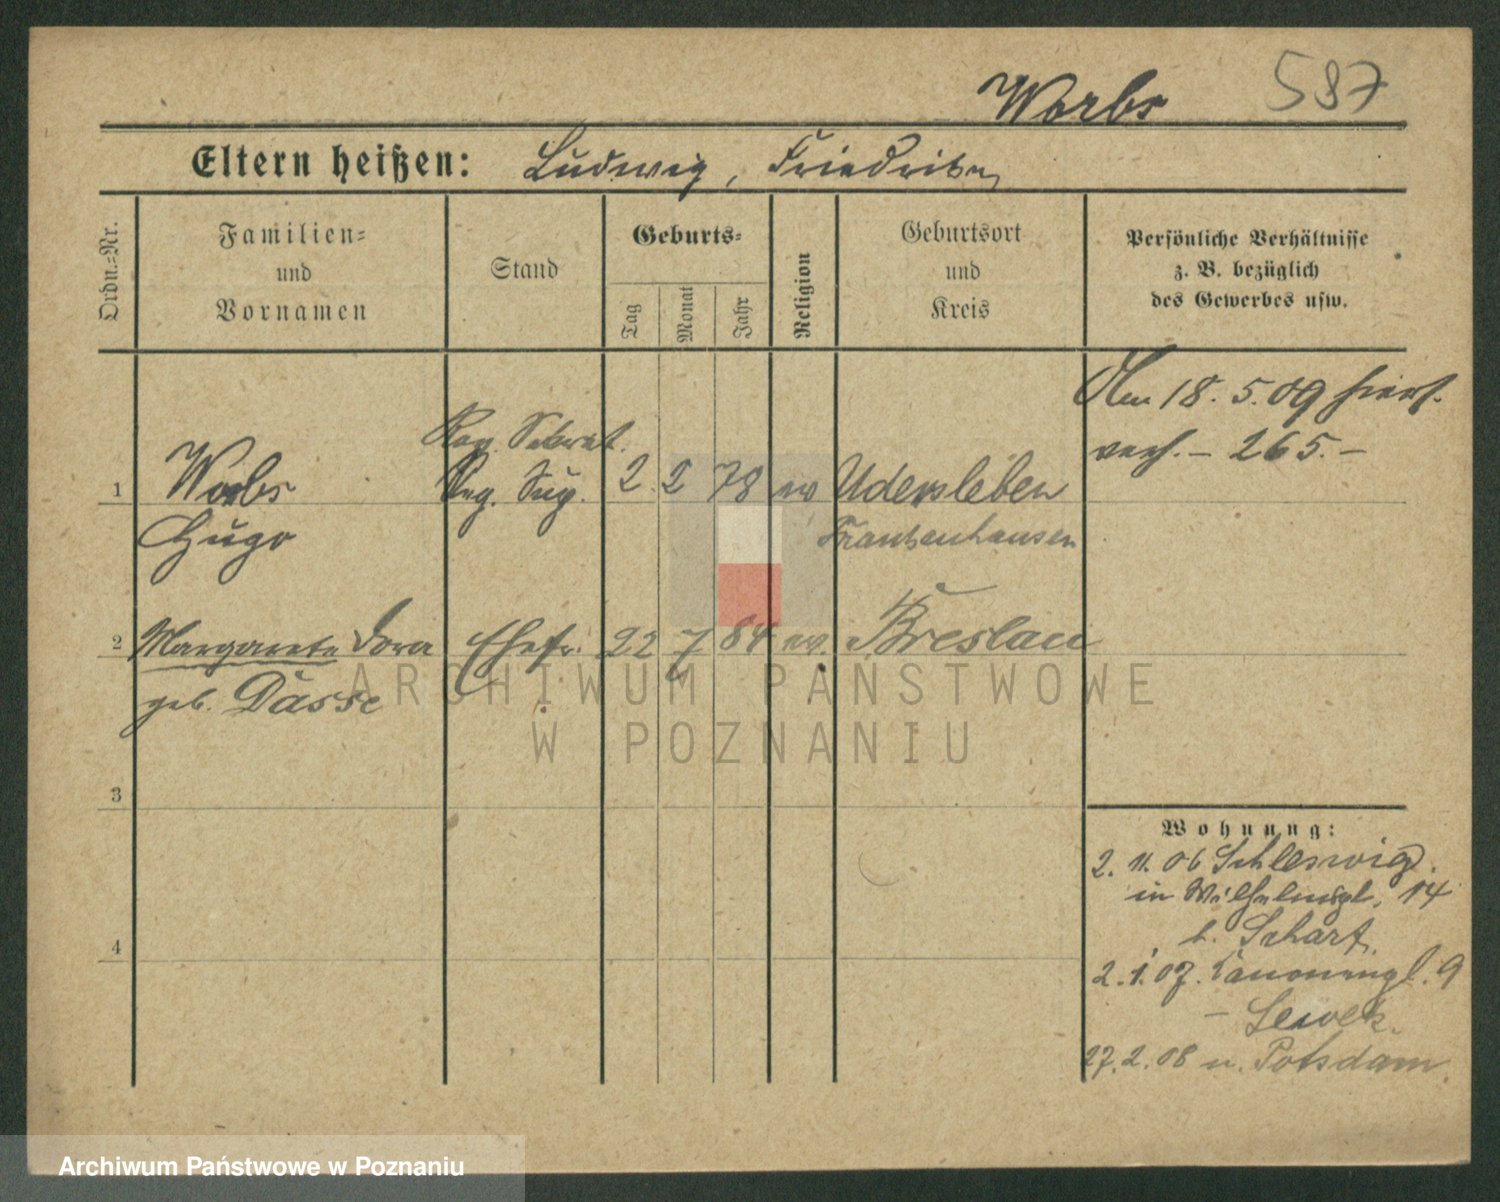 Worbs 587
Eltern heißen: Ludwig, Friedrike
Ordn.-Nr.
Familien-
und
Vornamen
Stand
Geburts-
Tag
Monat
Jahr
Religion
Geburtsort
und
Kreis
Persönliche Verhältnisse
z. B. bezüglich
des Gewerbes usw.
Am 18. 5. 09
265.-
Reg. Sekret.
1 Worbs Reg. Sup. 2 2 78 ev Udersleben
Hugo Frankenhausen
2 Margarete Dora Ehefr. 22 7 84 ev. Breslau
geb. Dasse
3
4
Wohnung:
2. 11. 06 Schleswig
in Wilhelmspl. 14
b. Schart.
2. 1. 07. Kanonenpl. 9
- Sewek.
27. 2. 08 n. Potsdam
ARCHIWUM PAŃSTWOWE
W POZNANIU
Archiwum Państwowe w Poznaniu